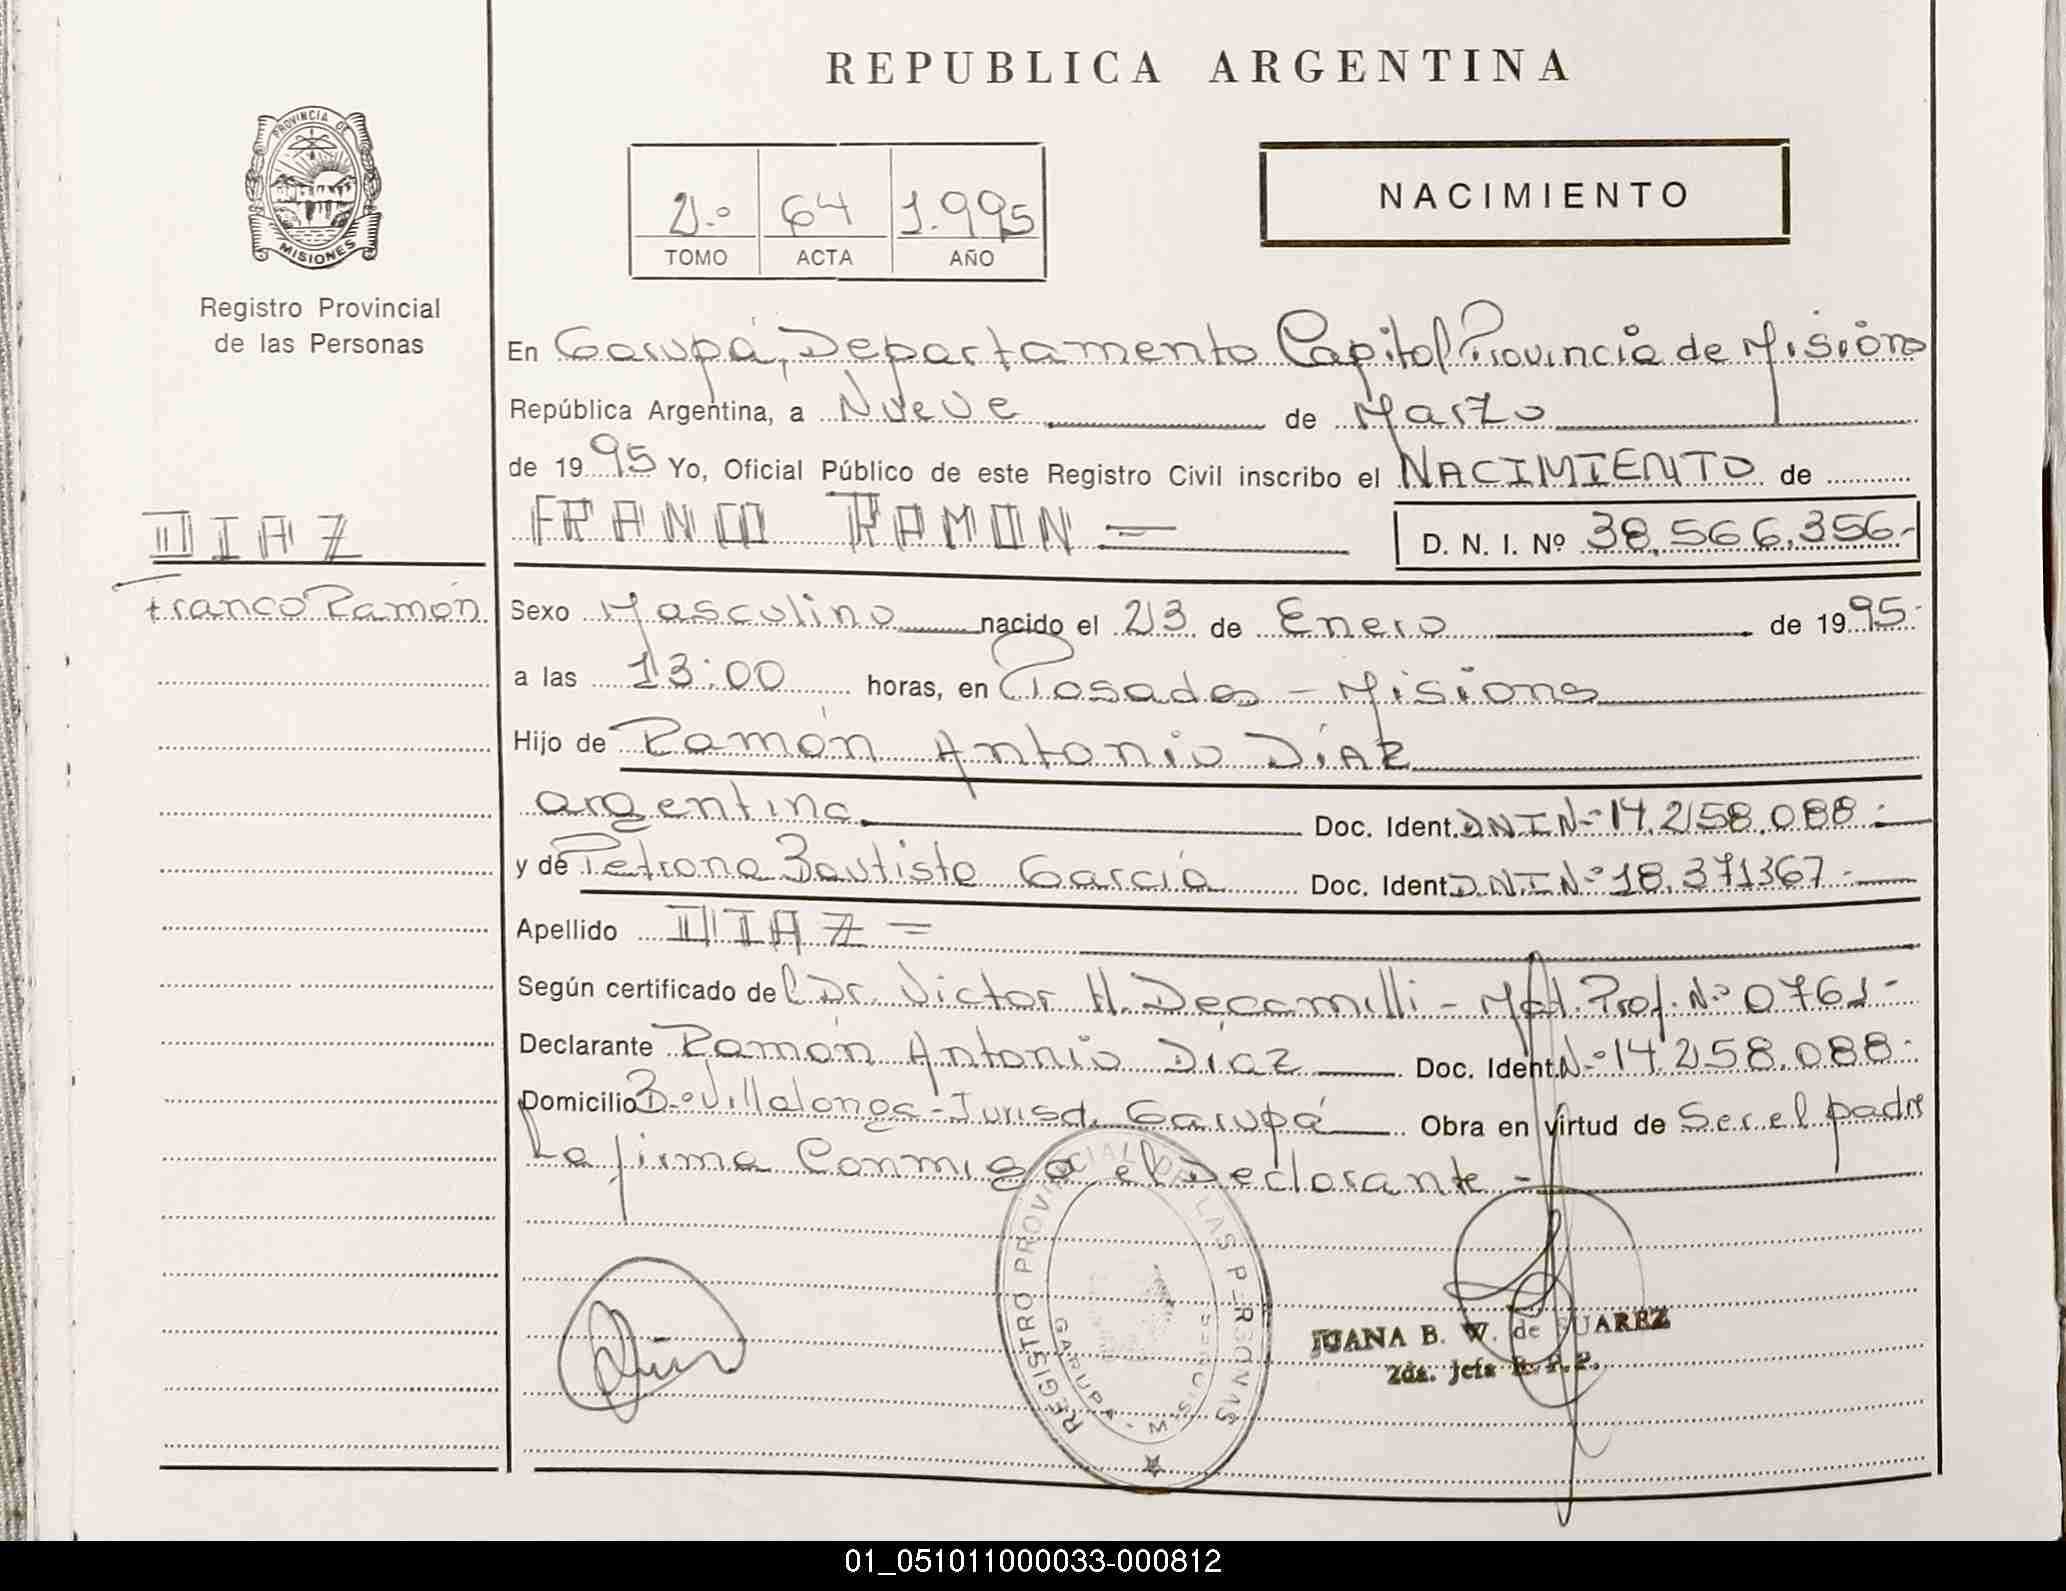 REPUBLICA ARGENTINA
PROVINCIA DE
MISIONES
Registro Provincial
de las Personas
2º 64 1.995
TOMO ACTA AÑO
NACIMIENTO
En Garupá, Departamento Capital Provincia de Misiones
República Argentina, a Nueve de Marzo
de 1995 Yo, Oficial Público de este Registro Civil inscribo el NACIMIENTO de
DIAZ
FRANCO RAMON =
D. N. I. Nº 38.566.356.-
Franco Ramón
Sexo Masculino nacido el 23 de Enero de 1995.-
a las 13:00 horas, en Posadas - Misiones
Hijo de Ramón Antonio DíAZ
argentina Doc. Ident. DNI Nº 14.258.088.-
y de Petrona Bautista García Doc. Ident. DNI Nº 18.371367.-
Apellido DIAZ =
Según certificado del Dr. Victor H. Decamilli - Mat. Prof. Nº 0761-
Declarante Ramón Antonio Díaz Doc. Ident. Nº 14.258.088.-
Domicilio Bº Villalonga - Jurisd. Garupá Obra en virtud de Ser el padre
La firma Conmigo el Declarante -
REGISTRO PROVINCIAL DE LAS PERSONAS
GARUPA - MISIONES
JUANA B. W. de SUAREZ
2da. Jefa R. P. P.
01_051011000033-000812